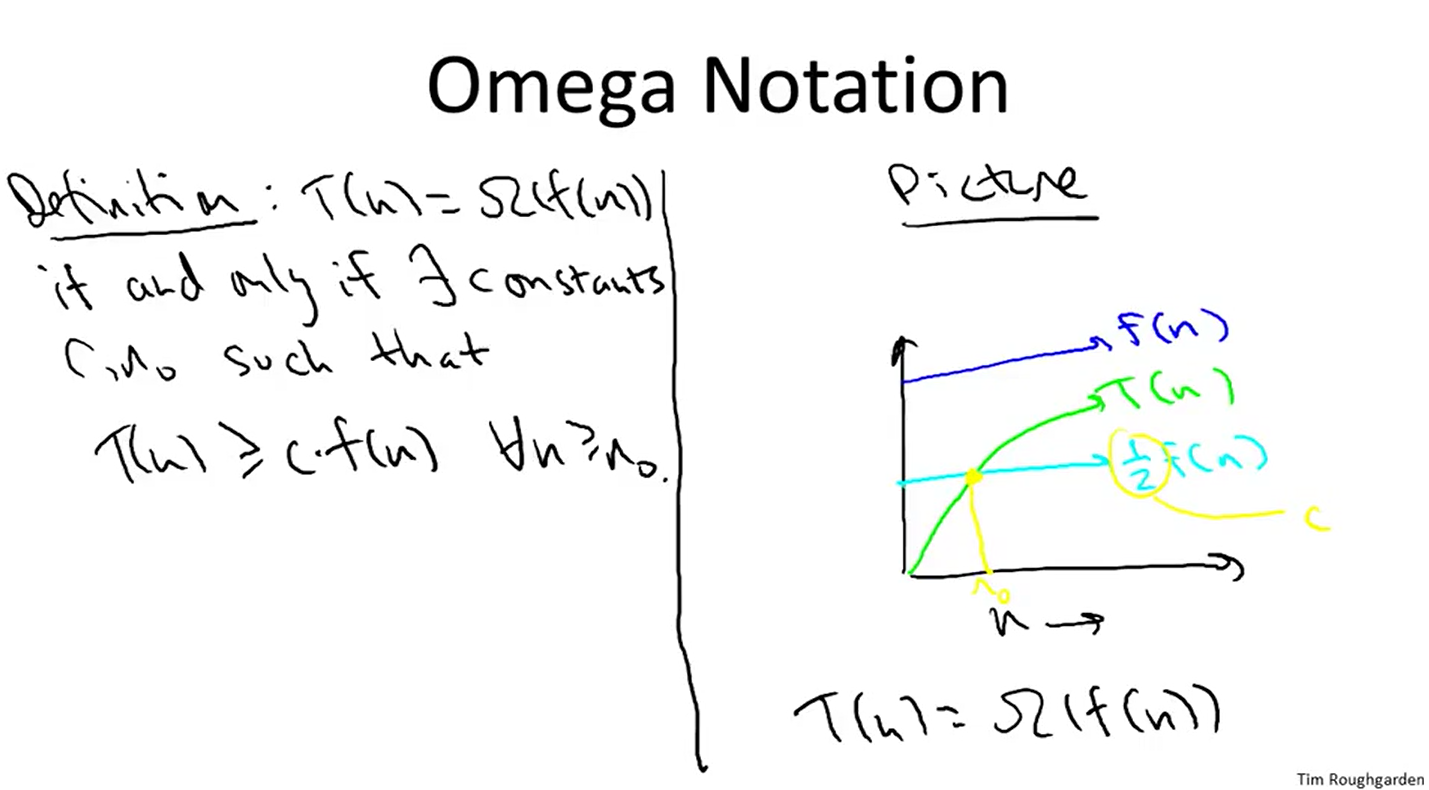 Omega Notation
Definition : T(n) = Ω(f(n))
if and only if ∃ constants
c, n₀ such that
T(n) ≥ c·f(n) ∀n ≥ n₀.
Picture
f(n)
T(n)
½ f(n)
c
n₀
n →
T(n) = Ω(f(n))
Tim Roughgarden